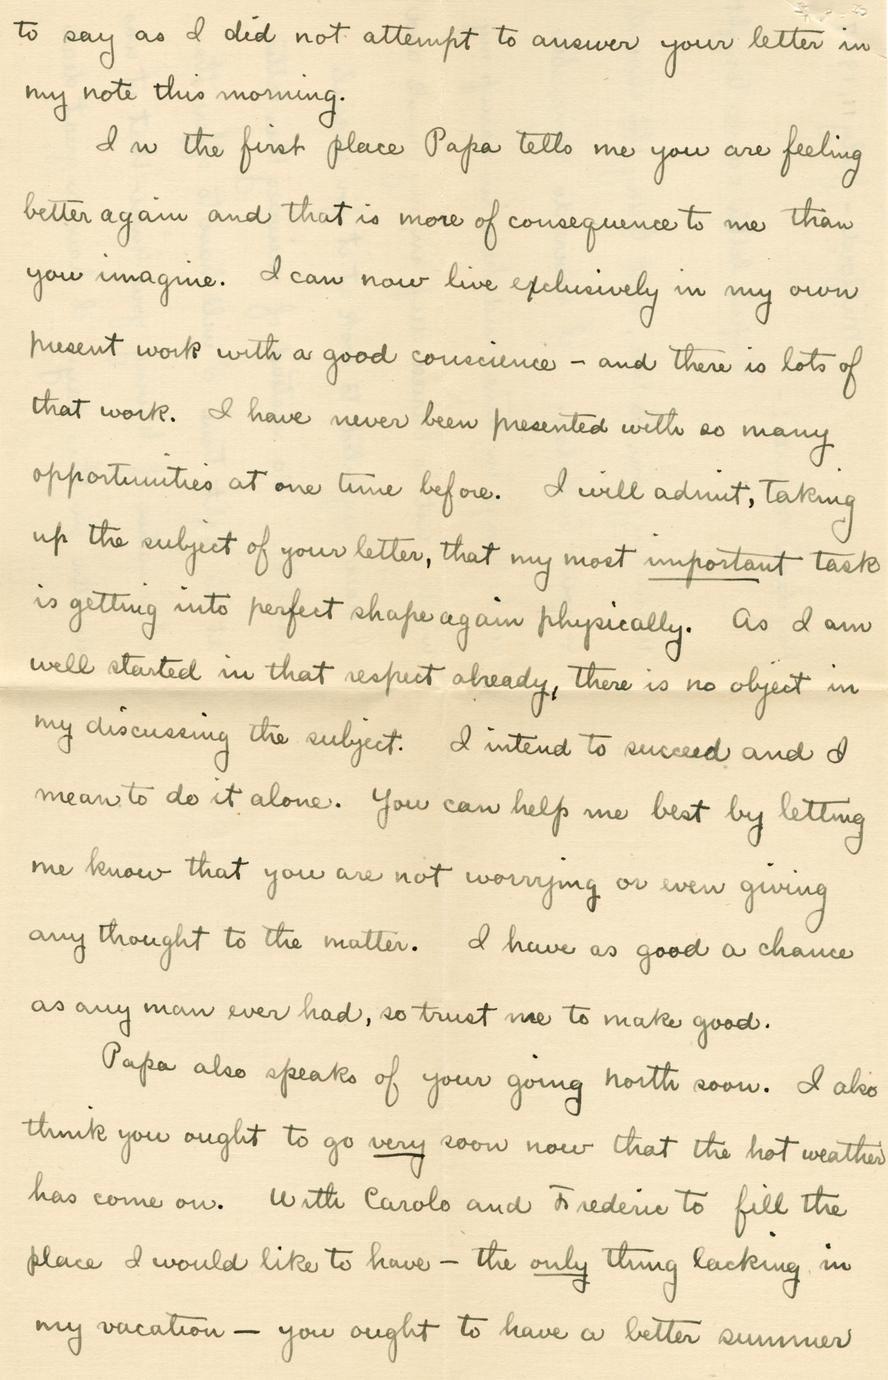 to say as I did not attempt to answer your letter in
my note this morning.
In the first place Papa tells me you are feeling
better again and that is more of consequence to me than
you imagine. I can now live exclusively in my own
present work with a good conscience – and there is lots of
that work. I have never been presented with so many
opportunities at one time before. I will admit, taking
up the subject of your letter, that my most important task
is getting into perfect shape again physically. As I am
well started in that respect already, there is no object in
my discussing the subject. I intend to succeed and I
mean to do it alone. You can help me best by letting
me know that you are not worrying or even giving
any thought to the matter. I have as good a chance
as any man ever had, so trust me to make good.
Papa also speaks of your going north soon. I also
think you ought to go very soon now that the hot weather
has come on. With Carolo and Frederic to fill the
place I would like to have – the only thing lacking in
my vacation – you ought to have a better summer